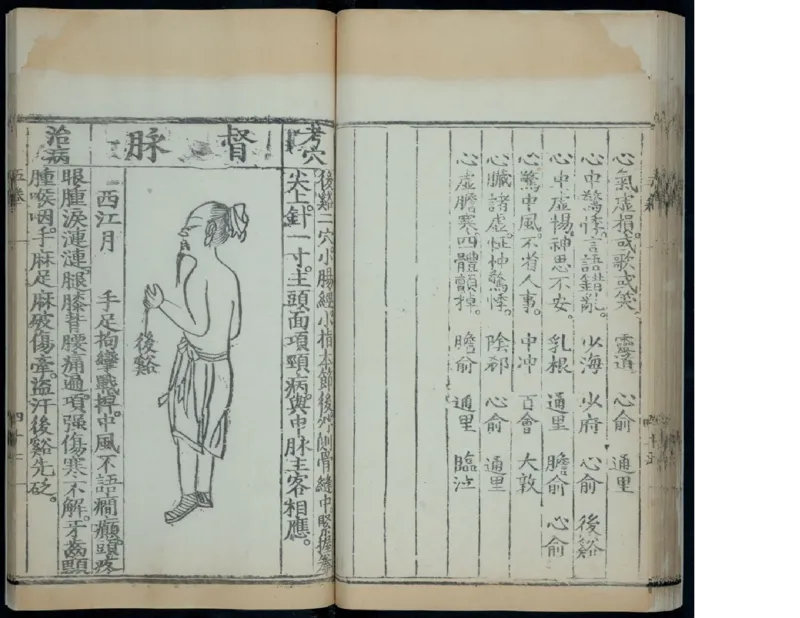 心氣虛損或歌或笑。 靈道 心俞 通里
心中驚悸。言語錯亂。 少海 少府 心俞 後谿
心中虛惕。神思不安。 乳根 通里 膽俞 心俞
心驚中風。不省人事。 中冲 百會 大敦
心臟諸虛。怔忡驚悸。 陰郄 心俞 通里
心虛膽寒。四體顫掉。 膽俞 通里 臨泣
考穴
後谿二穴小腸經小指本節後外側骨縫中緊握拳
尖上。針一寸。主頭面項頸病。與申脉主客相應。
督脉
後谿
治病
西江月 手足拘攣戰掉。中風不語癇癲。頭疼
眼腫淚漣漣。腿膝背腰痛遍。項强傷寒不解。牙齒顋
腫喉咽。手麻足麻破傷牽。盜汗後谿先砭。